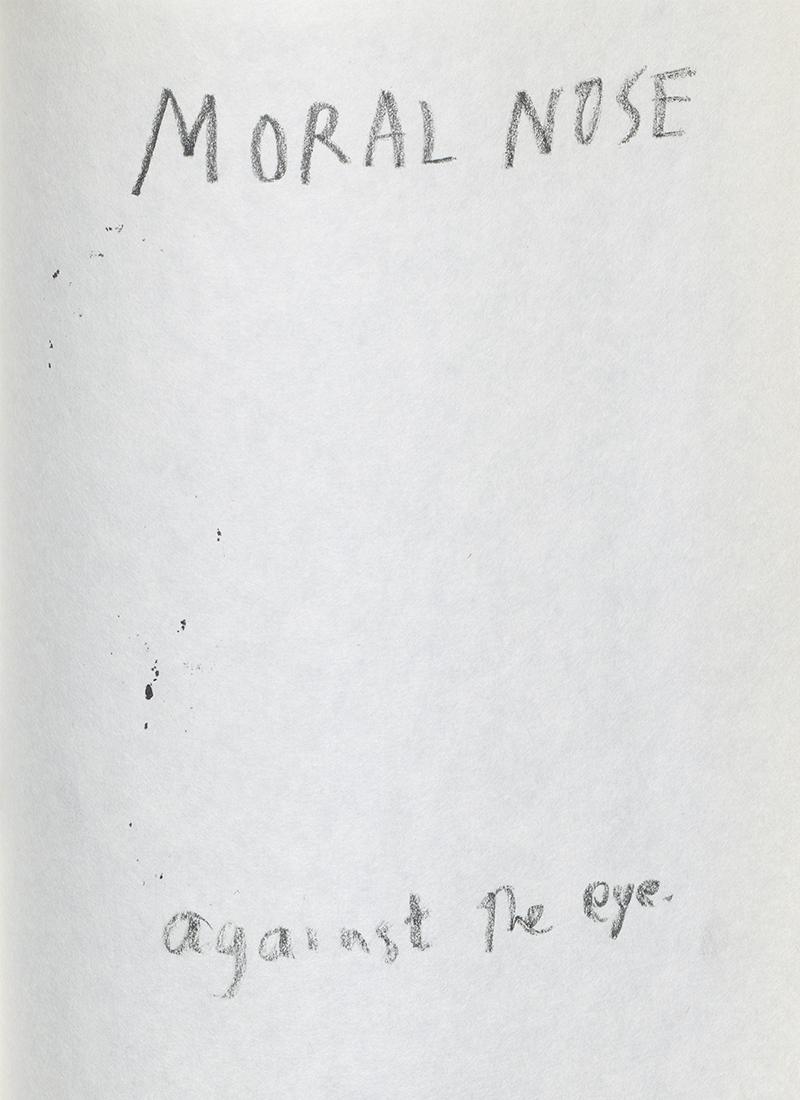 MORAL NOSE
against the eye.